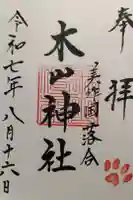 奉拝
美作國落合
木山神社
令和七年八月十六日